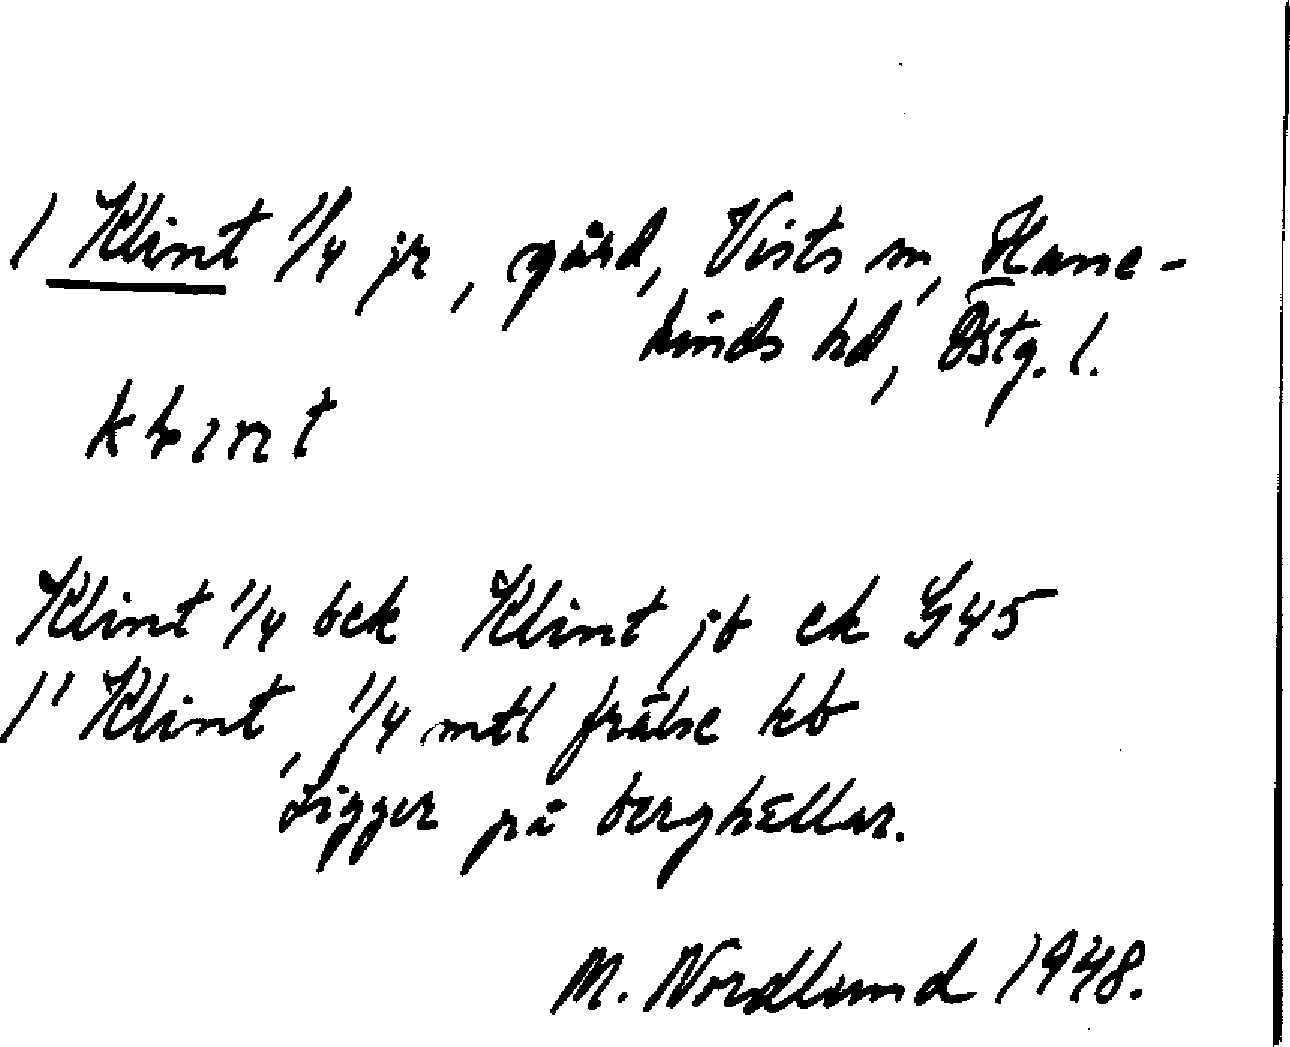 1 Klint 1/4 jr, gård, Vists sn, Hane-
kinds hd, Östg. l.
klınt
Klint 1/4 bek Klint jb ek G45
1' Klint, 1/4 mtl frälse kb
Ligger på berghällar.
M. Nordlund 1948.